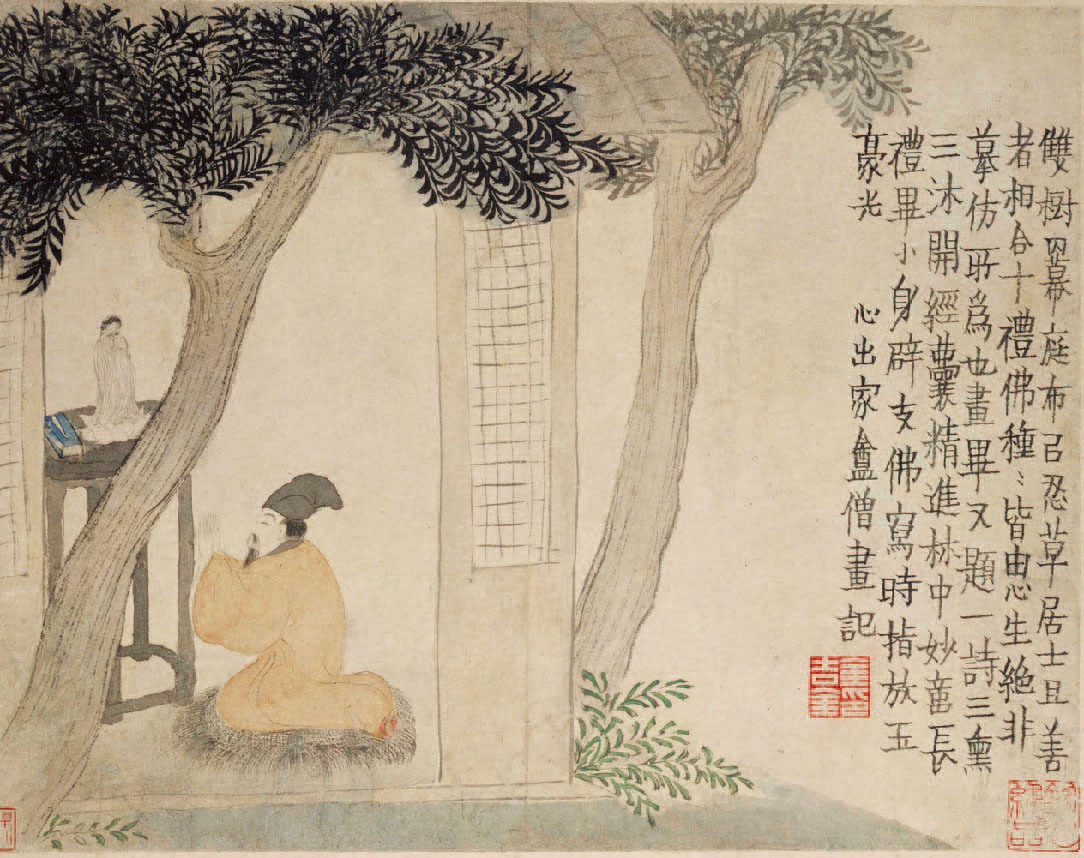 雙樹羃庭布㠯忍草居士且善
者相合十禮佛種〻皆由心生絶非
摹仿所爲也畫畢又題一詩三熏
三沐開經囊精進林中妙童長
禮畢小身辟支佛寫時指放五
豪光　心出家盦僧畫記